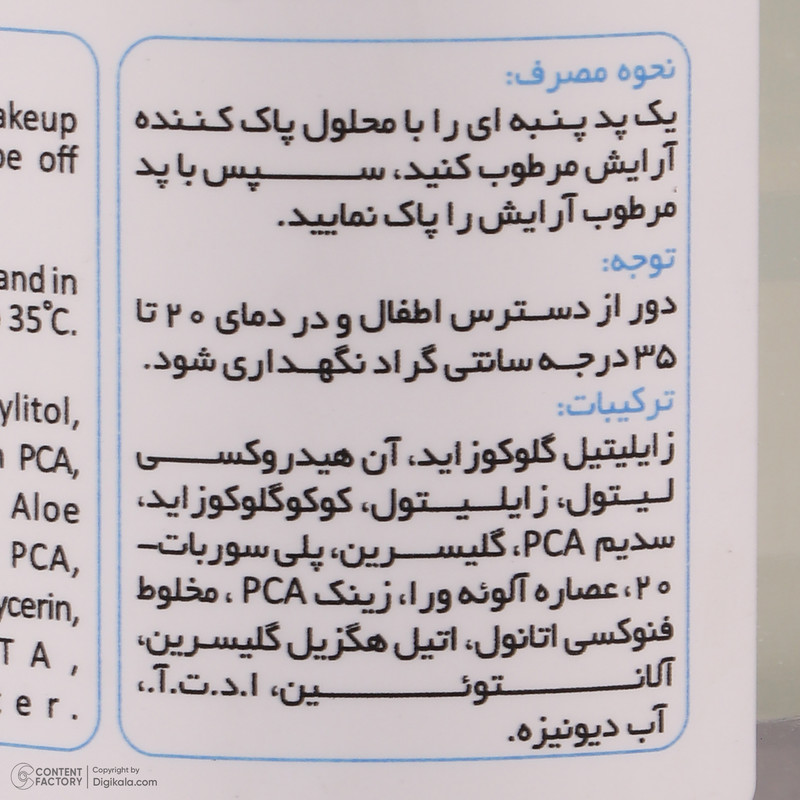 نحوه مصرف:
یک پد پنبه ای را با محلول پاک کننده
آرایش مرطوب کنید، سپس با پد
مرطوب آرایش را پاک نمایید.
توجه:
دور از دسترس اطفال و در دمای ۲۰ تا
۳۵ درجه سانتی گراد نگهداری شود.
ترکیبات:
زایلیتیل گلوکوزاید، آن هیدروکسی
لیتول، زایلیتول، کوکوگلوکوزاید،
سدیم PCA، گلیسرین، پلی سوربات-
۲۰، عصاره آلوئه ورا، زینک PCA، مخلوط
فنوکسی اتانول، اتیل هگزیل گلیسرین،
آلانتوئین، ا.د.ت.آ.،
آب دیونیزه.
akeup
be off
and in
35°C.
ylitol,
PCA,
Aloe
PCA,
ycerin,
T A ,
t e r .
CONTENT FACTORY
Copyright by
Digikala.com